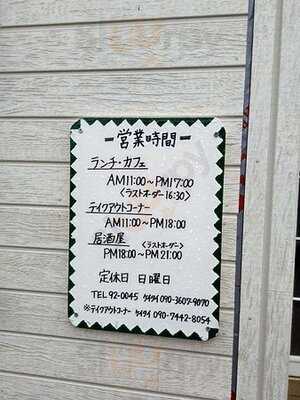 ー営業時間ー
ランチ・カフェ
AM11:00〜PM17:00
〈ラストオーダー16:30〉
テイクアウトコーナー
AM11:00〜PM18:00
居酒屋 〈ラストオーダー〉
PM18:00〜PM21:00
定休日 日曜日
TEL 92-0045 ケイタイ 090-3607-9070
※テイクアウトコーナー ケイタイ 090-7442-8054